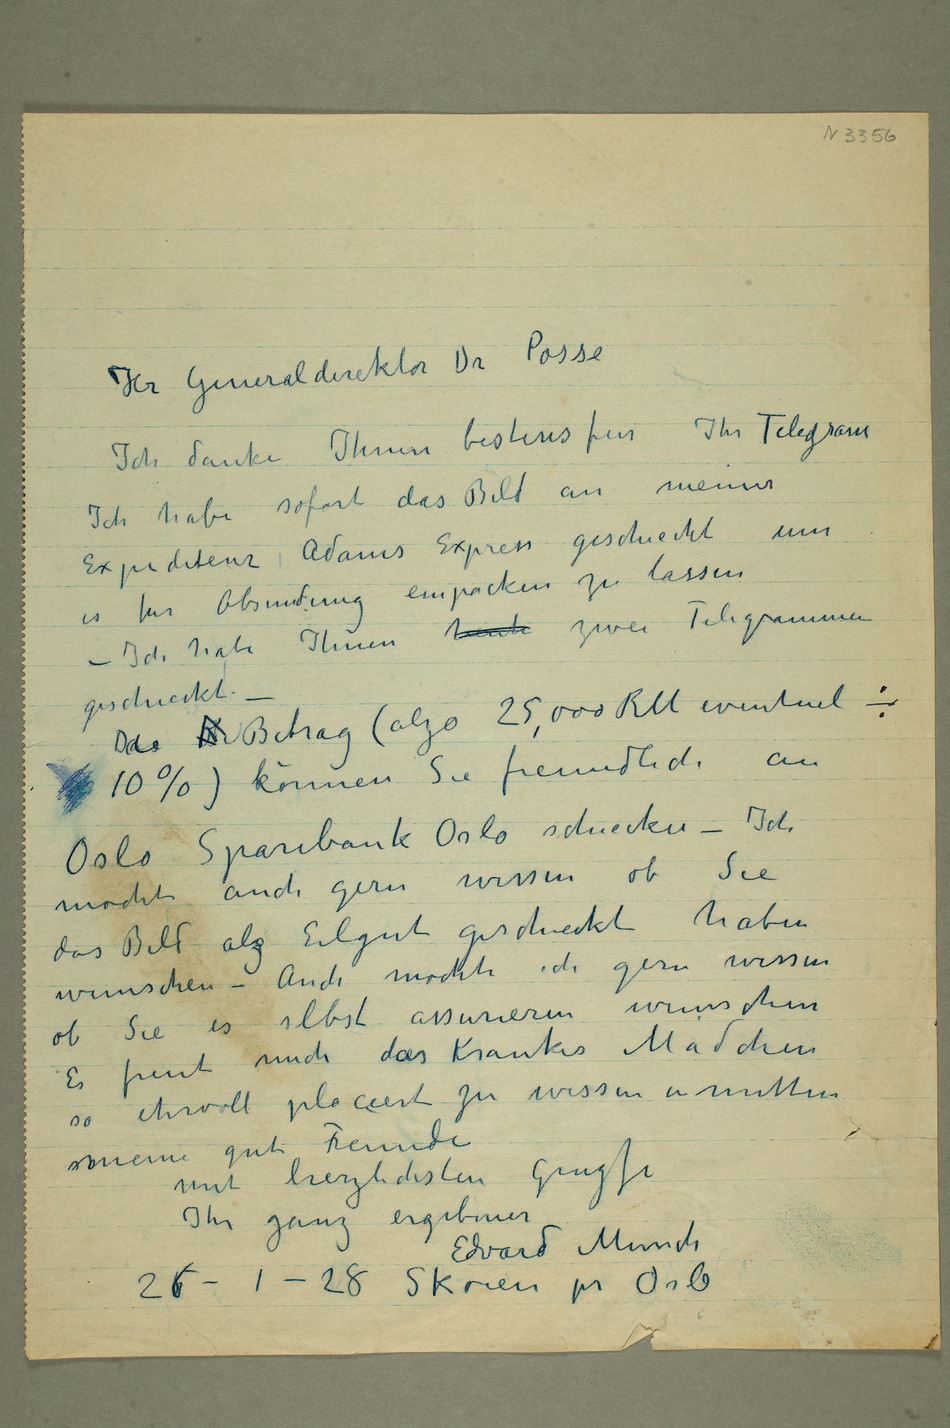 N 3356
Hr Generaldirektor Dr Posse
Ich danke Ihnen bestens für Ihr Telegram
Ich habe sofort das Bild an meiner
Expediteur Adams Express geschieckt um
es fur Absendung empacken zu lassen
– Ich habe Ihnen heute zwei Telegrammen
geschieckt. –
Das Betrag (alzo 25,000 RM eventuel ÷
10%) können Sie freundlich an
Oslo Sparebank Oslo schiecken – Ich
mochte auch gern wissen ob Sie
das Bild alz Eilgut geschieckt haben
wunschen – Auch mochte ich gern wissen
ob Sie es selbst assurieren wunschen
Es freut mich das Krankes Mädchen
so ehrvoll placiert zu wissen u mitten
meine gute Freunde
mit herzlichsten
Ihr ganz ergebener
Edvard Munch
26 – 1 – 28 Skøien pr Oslo